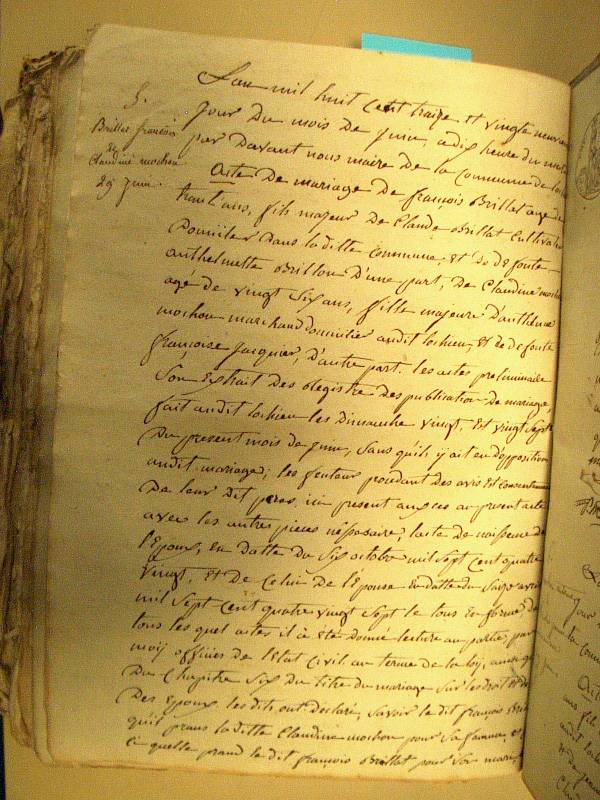 5.
Brillat françois
et
Claudine mochon
29 juin.
L'an mil huit cent traize et vingte neuve
jour du mois de juin, a dix heure du mat
par davant nous maire de la commune de lochieu
Acte de mariage de françois Brillat agé de
trante ans, fils majeur de Claude Brillat Cultivateur
domicilier dans la ditte commune, et de defente
anthelmette Brillon d'une part, de Claudine mochon
agé de vingt six ans, fille majeure d'anthelme
mochon marchand domicilier audit lochieu, et de defente
françoise jacquier, d'autre part. les actes preliminaire
Son Extrait des Registre des publication de mariage,
fait audit lochieu les dimanche vingt, et vingt sept
du present mois de juin, sans qu'ils y ait eu d'opposition
audit mariage;
de leur dit peres, ici present au present acte
avec les autres pieces nésposaire, lacte de naissence de
l'Epoux, en datte du six octobre mil sept cent quatre
vingt, et de celui de l'épouse en datte du avril
mil sept cent quatre vingt sept le tous en forme, de
tous les quel actes il à été donné lecture au parties, par
moij officier de l'Etat Civil au terme de la loij, ainsi que
du Chapitre six du titre du mariage sur les droit et de
des Epoux, les dits ont declaré, savoir le dit françois Brillat
qu'il prans la ditte Claudine mochon pour sa famme, et
ci quelle prand le dit françois Brillat pour son mari